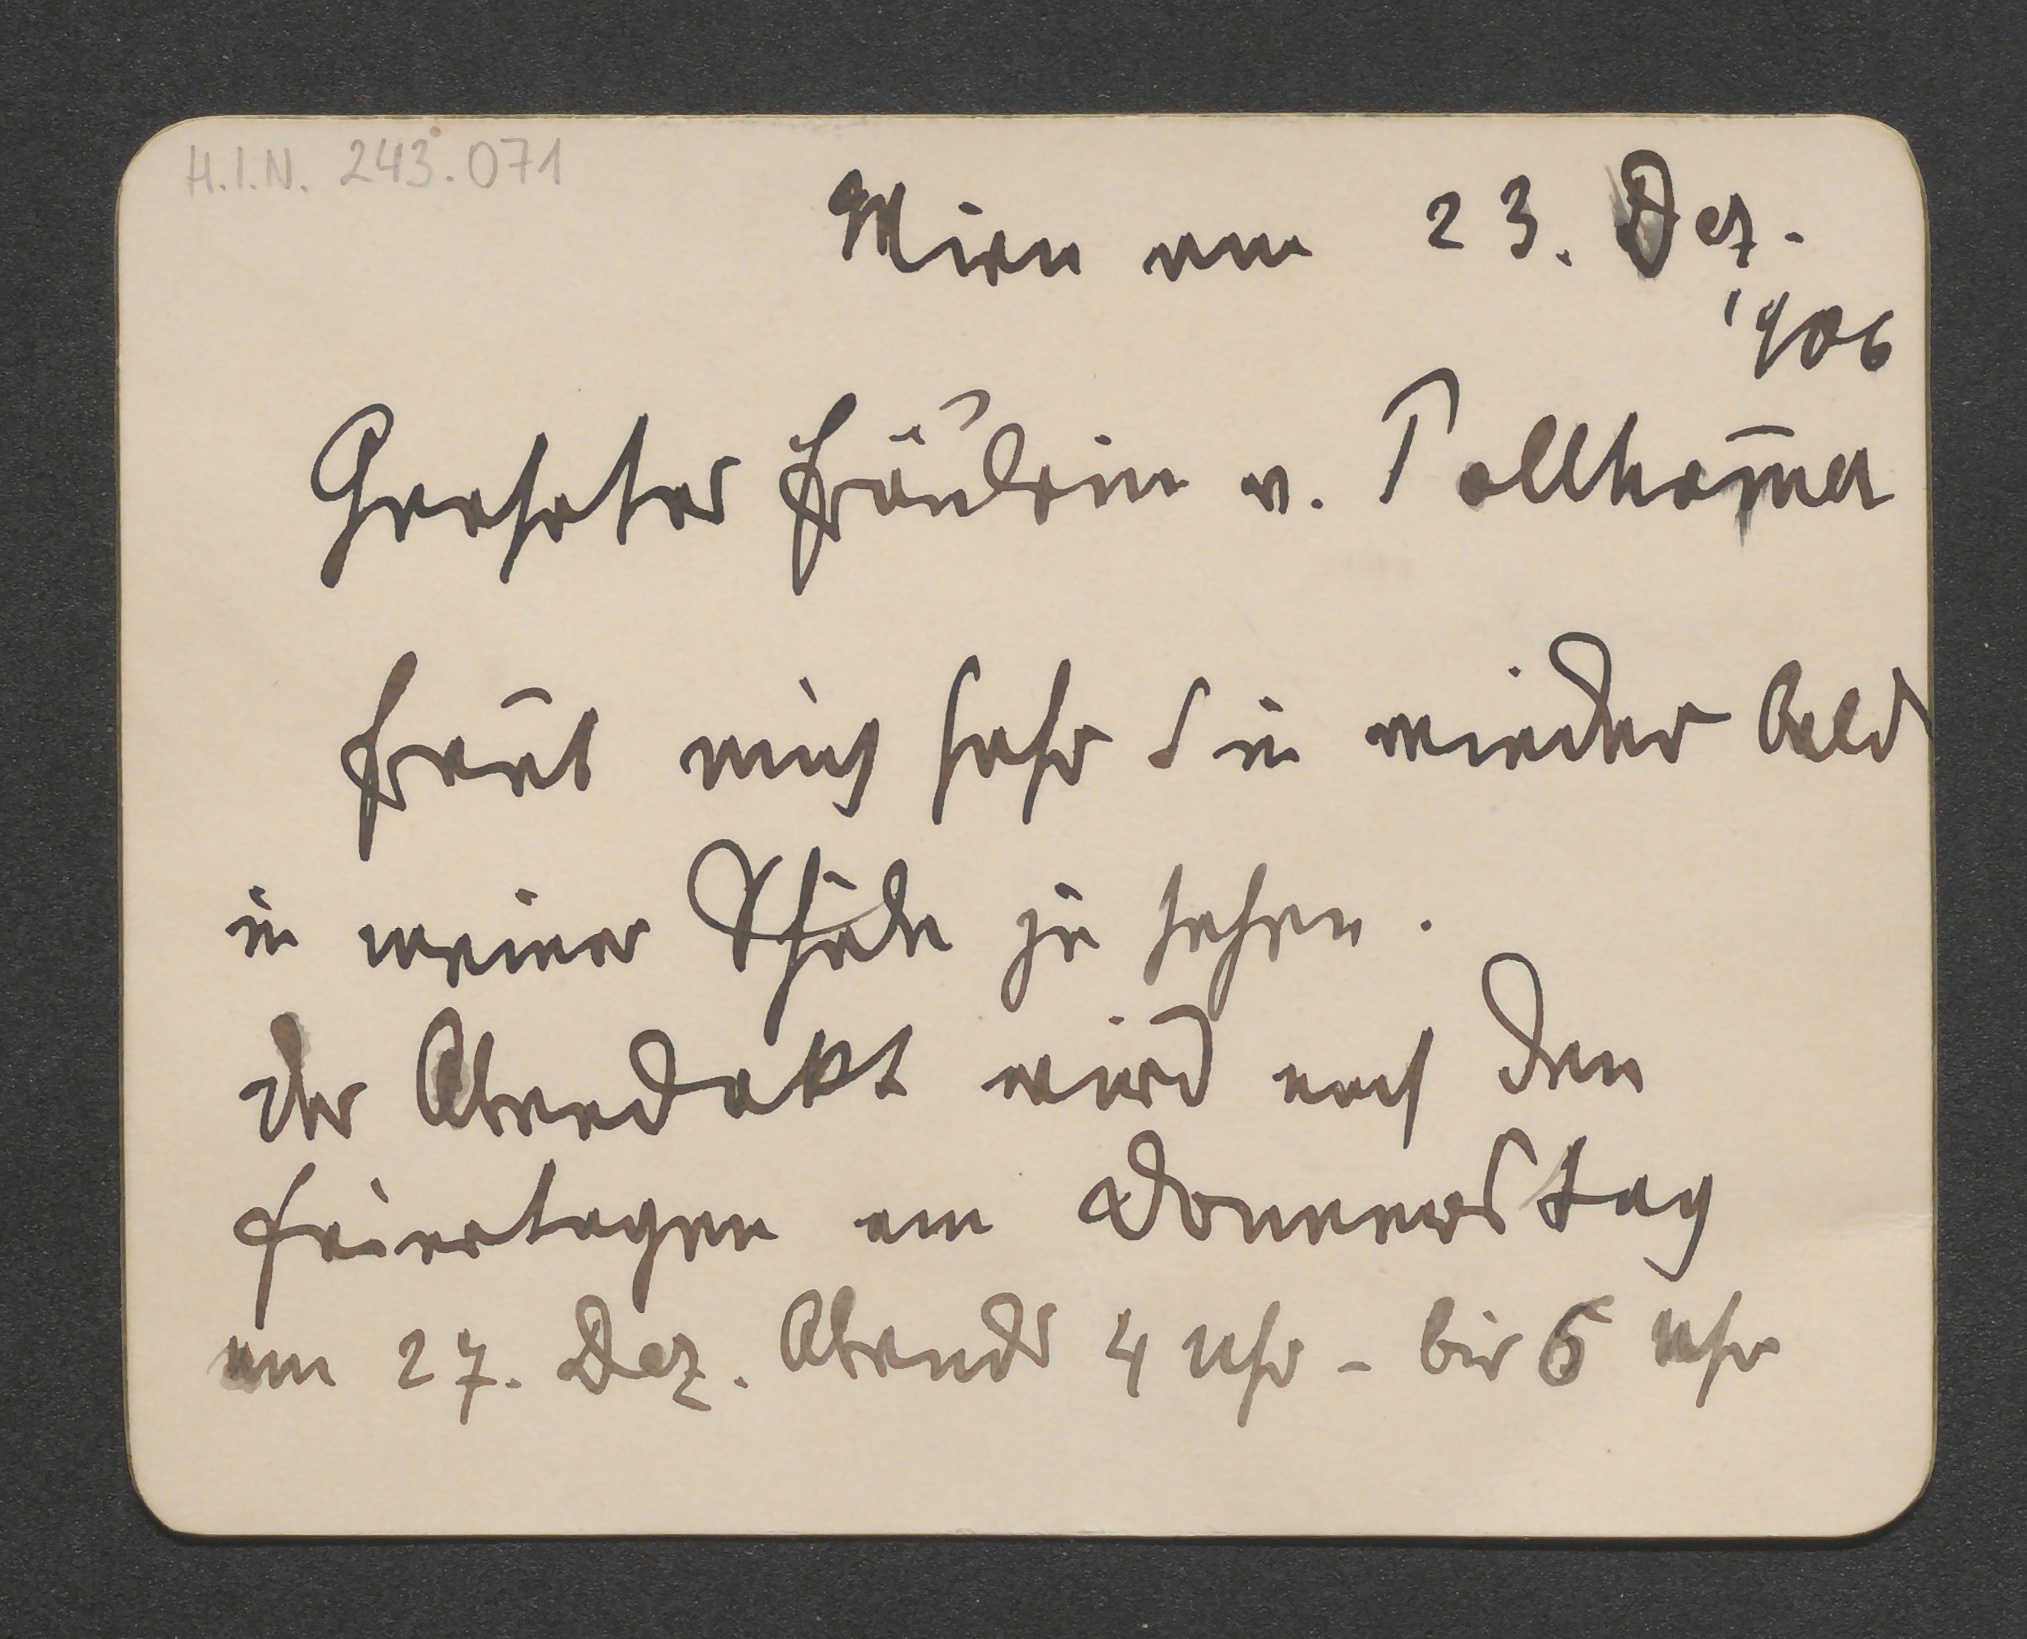 H.I.N. 243.071
Wien am 23. Dez.
1906
Geehrter Fräulein v. Pollham̄er
Freut mich sehr Sie wieder bald
in meiner Schule zu sehen.
Der Abendakt wird nach den
Feiertagen am Donnerstag
am 27. Dez. Abends 4 Uhr - bis 6 Uhr